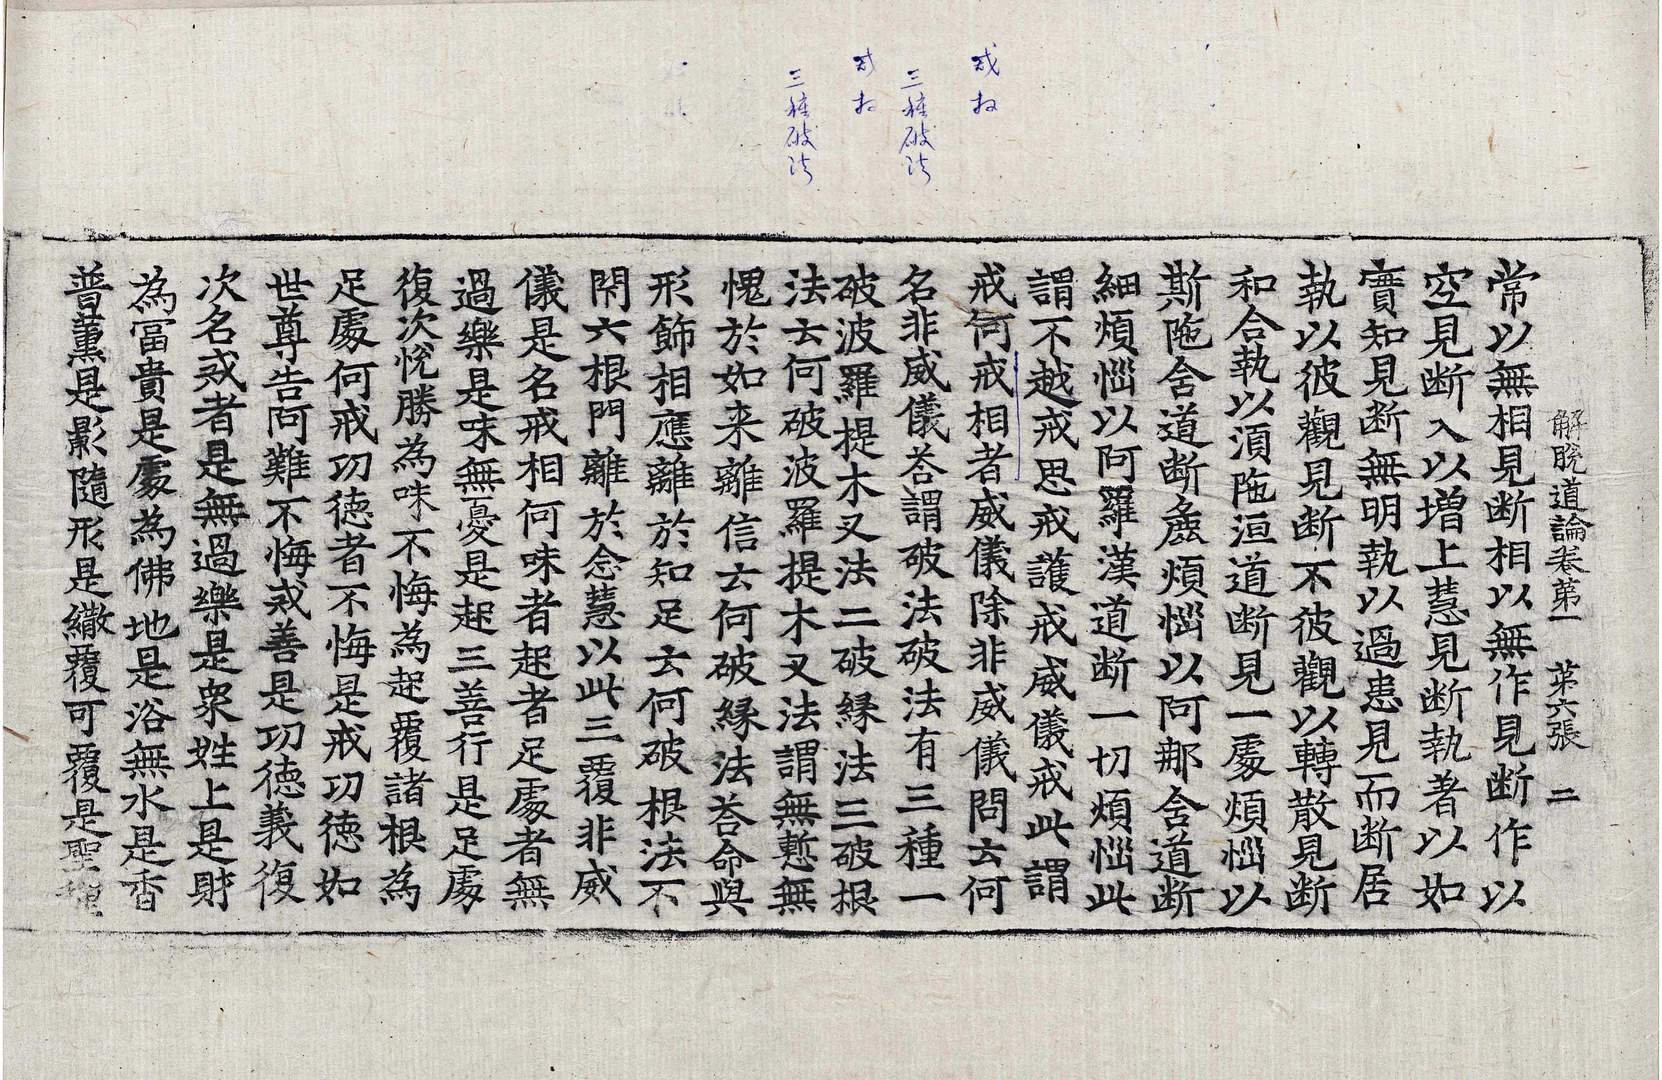 戒相
三種破法
戒相
三種破法
解脱道論卷第一 第六張 二
常以無相見断相以無作見断作以
空見断入以增上慧見断執著以如
實知見断無明執以過患見而断居
執以彼觀見断不彼觀以轉散見断
和合執以湏陁洹道断見一處煩惱以
斯陁含道断麁煩惱以阿那含道断
細煩惱以阿羅漢道断一切煩惱此
謂不越戒思戒護戒威儀戒此謂
戒何戒相者威儀除非威儀問云何
名非威儀荅謂破法破法有三種一
破波羅提木叉法二破縁法三破根
法云何破波羅提木叉法謂無慙無
愧於如来離信云何破縁法荅命與
形飾相應離於知足云何破根法不
閇六根門離於念慧以此三覆非威
儀是名戒相何味者起者足處者無
過樂是味無憂是起三善行是足處
復次悅勝為味不悔為起覆諸根為
足處何戒功徳者不悔是戒功徳如
世尊告阿難不悔戒善是功徳義復
次名戒者是無過樂是衆姓上是財
為冨貴是處為佛地是浴無水是香
普薫是影隨形是繖覆可覆是聖種